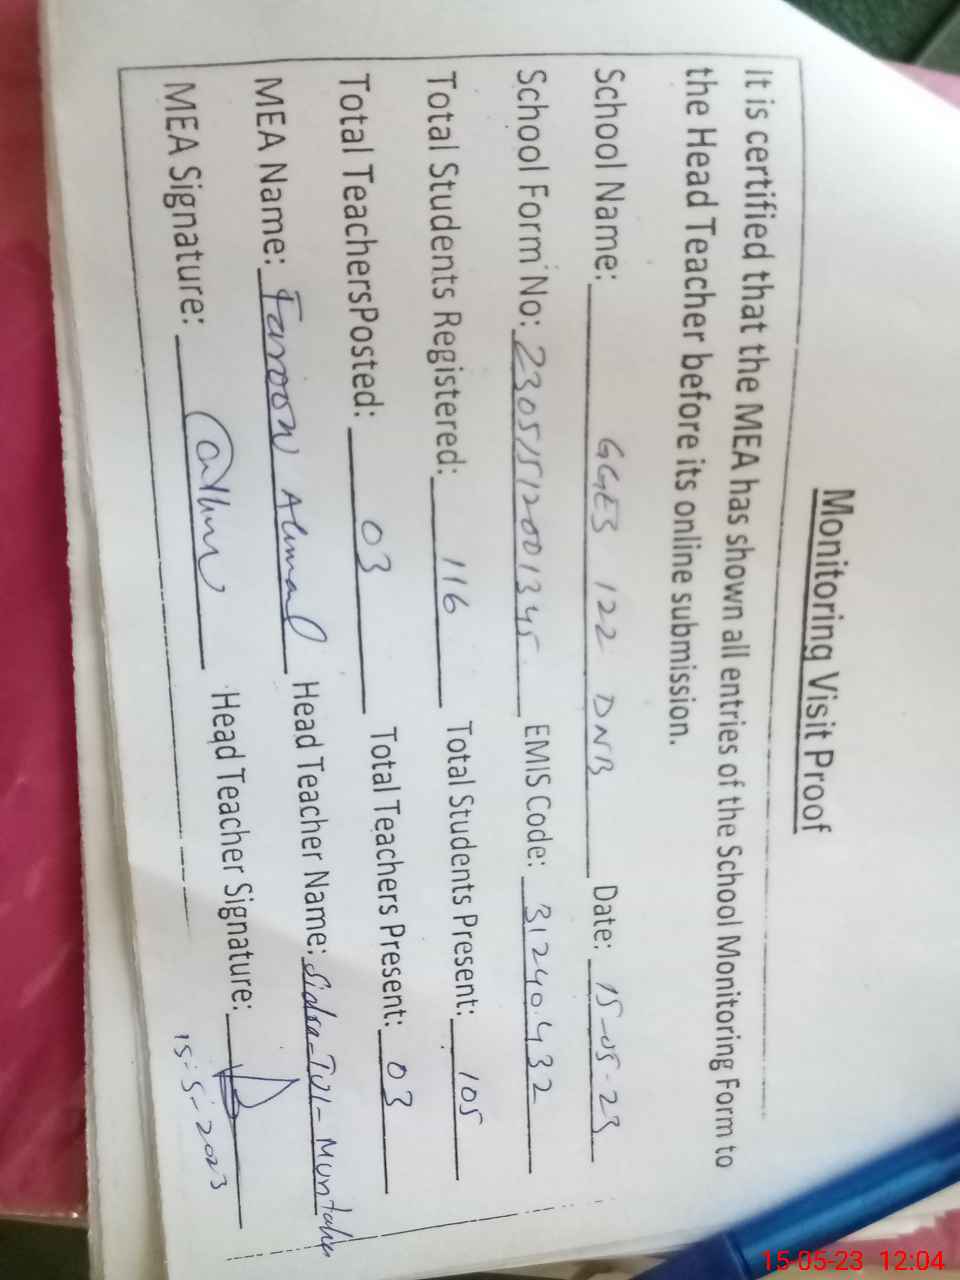 Monitoring Visit Proof
It is certified that the MEA has shown all entries of the School Monitoring Form to
the Head Teacher before its online submission.
School Name: GGES 122 DNB Date: 15-05-23
School Form No: 23051512001345 EMIS Code: 31240432
Total Students Registered: 116 Total Students Present: 105
Total TeachersPosted: 03 Total Teachers Present: 03
MEA Name: Farooq Ahmad Head Teacher Name: Sidra-Tul-Muntaha
MEA Signature: Head Teacher Signature:
15-5-2023
15-05-23 12:04